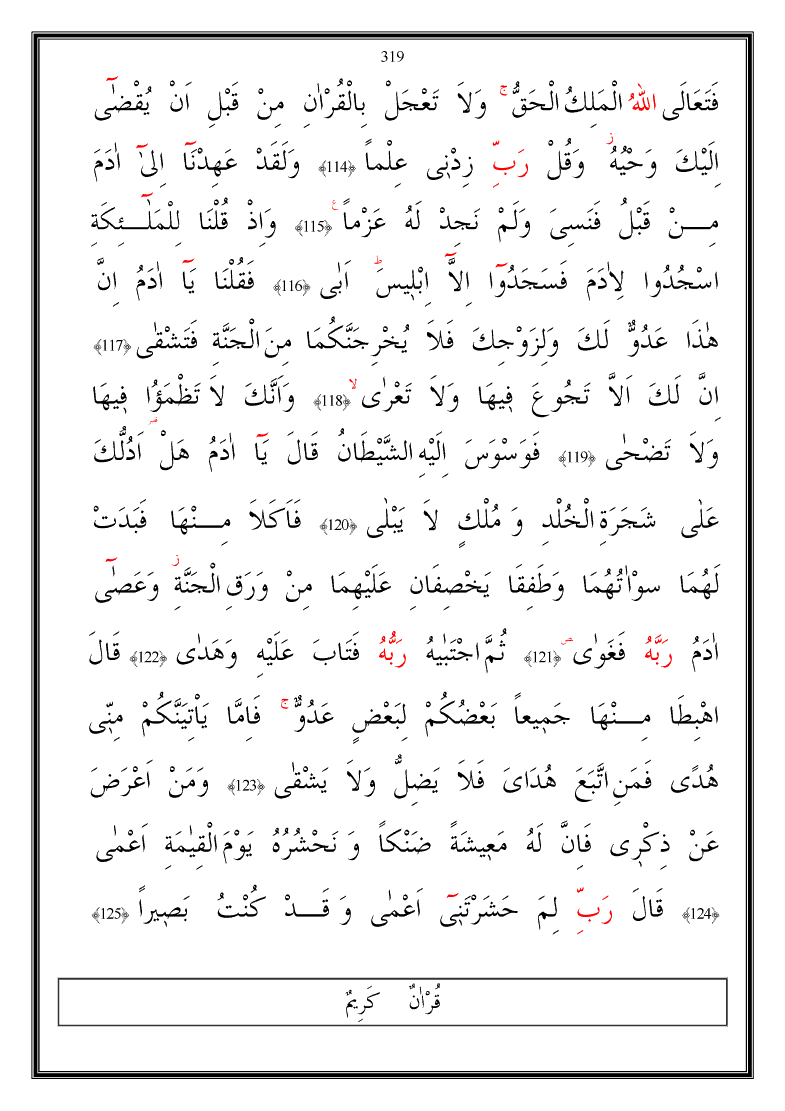 319
فَتَعَالَى اللّٰهُ الْمَلِكُ الْحَقُّ ۚ وَلاَ تَعْجَلْ بِالْقُرْاٰنِ مِنْ قَبْلِ اَنْ يُقْضٰٓى
اِلَيْكَ وَحْيُهُ ۘ وَقُلْ رَبِّ زِدْنٖى عِلْماً ﴿114﴾ وَلَقَدْ عَهِدْنَٓا اِلٰٓى اٰدَمَ
مِـــنْ قَبْلُ فَنَسِىَ وَلَمْ نَجِدْ لَهُ عَزْماً ﴿115﴾ وَاِذْ قُلْنَا لِلْمَلٰٓـــئِكَةِ
اسْجُدُوا لِاٰدَمَ فَسَجَدُٓوا اِلآَّ اِبْلٖيسَ ؕ اَبٰى ﴿116﴾ فَقُلْنَا يَٓا اٰدَمُ اِنَّ
هٰذَا عَدُوٌّ لَكَ وَلِزَوْجِكَ فَلاَ يُخْرِجَنَّكُمَا مِنَ الْجَنَّةِ فَتَشْقٰى ﴿117﴾
اِنَّ لَكَ اَلاَّ تَجُوعَ فٖيهَا وَلاَ تَعْرٰى ۙ ﴿118﴾ وَاَنَّكَ لاَ تَظْمَؤُا فٖيهَا
وَلاَ تَضْحٰى ﴿119﴾ فَوَسْوَسَ اِلَيْهِ الشَّيْطَانُ قَالَ يَٓا اٰدَمُ هَلْ اَدُلُّكَ
عَلٰى شَجَرَةِ الْخُلْدِ وَ مُلْكٍ لاَ يَبْلٰى ﴿120﴾ فَاَكَلاَ مِـــنْهَا فَبَدَتْ
لَهُمَا سوْاٰتُهُمَا وَطَفِقَا يَخْصِفَانِ عَلَيْهِمَا مِنْ وَرَقِ الْجَنَّةِ ؗ وَعَصٰٓى
اٰدَمُ رَبَّهُ فَغَوٰى ۖ ﴿121﴾ ثُمَّ اجْتَبٰيهُ رَبُّهُ فَتَابَ عَلَيْهِ وَهَدٰى ﴿122﴾ قَالَ
اهْبِطَا مِـــنْهَا جَمٖيعاً بَعْضُكُمْ لِبَعْضٍ عَدُوٌّ ۚ فَاِمَّا يَاْتِيَنَّكُمْ مِنّٖى
هُدًى فَمَنِ اتَّبَعَ هُدَاىَ فَلاَ يَضِلُّ وَلاَ يَشْقٰى ﴿123﴾ وَمَنْ اَعْرَضَ
عَنْ ذِكْرٖى فَاِنَّ لَهُ مَعٖيشَةً ضَنْكاً وَ نَحْشُرُهُ يَوْمَ الْقِيٰمَةِ اَعْمٰى
﴿124﴾ قَالَ رَبِّ لِمَ حَشَرْتَنٖٓى اَعْمٰى وَ قَـــدْ كُنْتُ بَصٖيراً ﴿125﴾
قُرْاٰنٌ كَرٖيمٌ